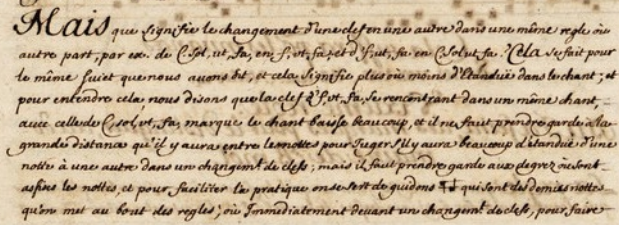 Mais que signifie le changement d'une clef en une autre dans une même regle où
autre part, par ex. de C, sol, ut, fa, en f, ut, fa, et d'f, ut, fa en C, sol ut, fa? Cela se fait pour
le même sujet que nous avons dit, et cela signifie plus où moins d'étanduë dans le chant; et
pour entendre cela, nous disons que la clef d'f, ut, fa, se rencontrant dans un même chant,
avec celle de C, sol, ut, fa, marque le chant baisse beaucoup, et il ne faut prendre garde à la
grande distance qu'il y aura entre les nottes pour Juger s'il y aura beaucoup d'étanduë d'une
notte à une autre dans un changemt. de clefs; mais il faut prendre garde aux degrez où sont
assises les nottes, et pour faciliter la pratique on se sert de guidons qui sont des demies nottes
qu'on met au bout des regles; où Immediatement devant un changemt. de clefs, pour faire